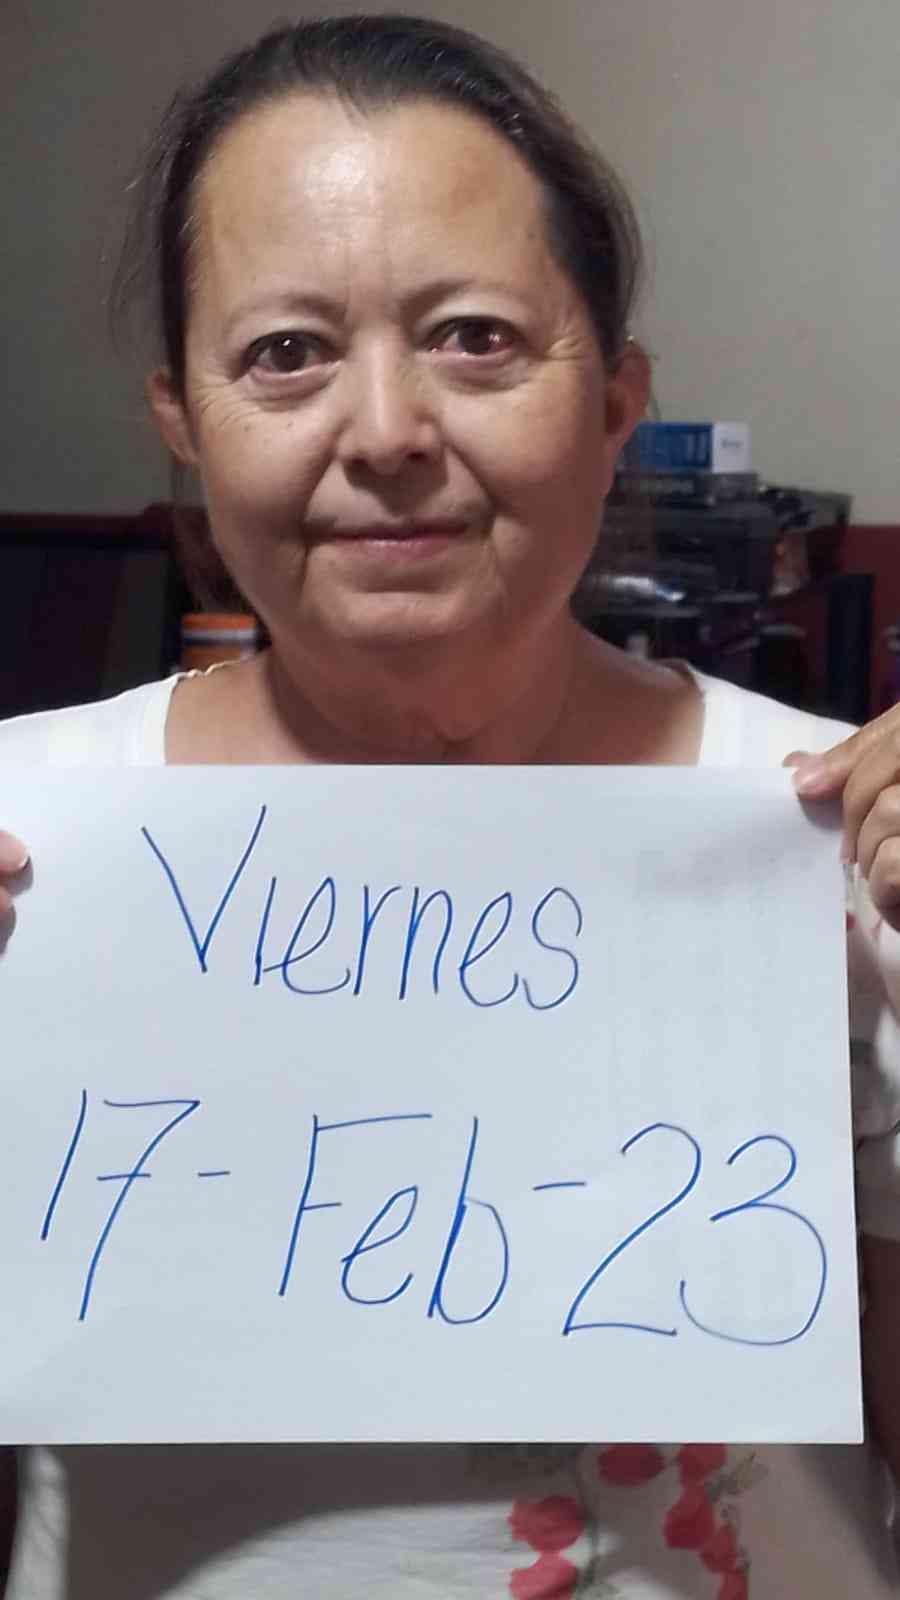 Viernes
17-Feb-23